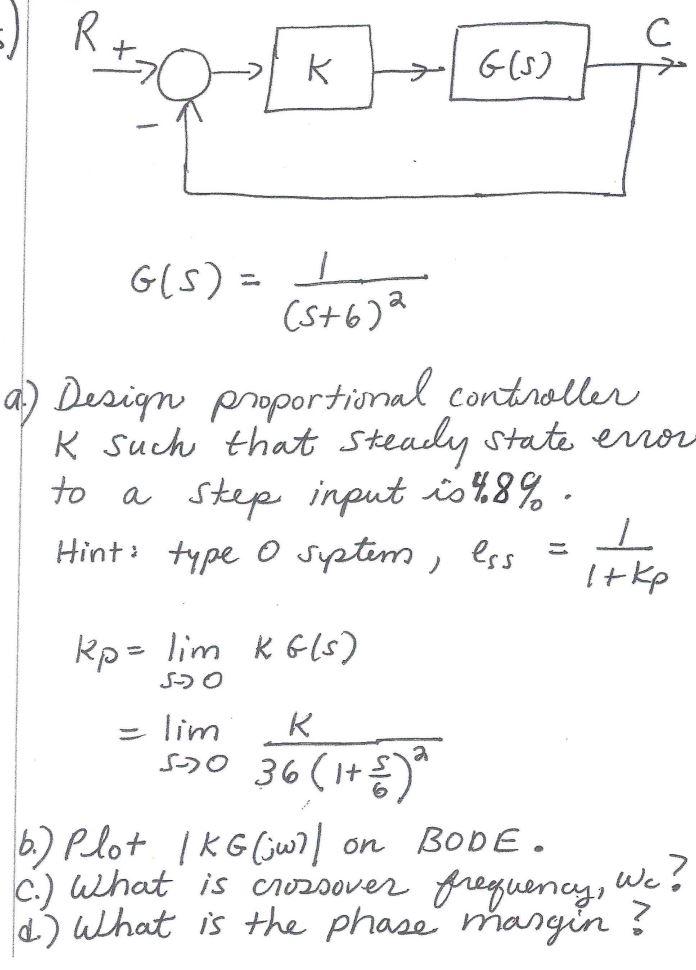 R + K G(s) C
-
G(s) = 1 / (s+6)²
a.) Design proportional controller
K such that steady state error
to a step input is 4.8%.
Hint: type 0 system, ess = 1 / 1+Kp
Kp = lim s→0 K G(s)
= lim s→0 K / 36 (1+s/6)²
b.) Plot |KG(jω)| on BODE.
c.) What is crossover frequency, ωc?
d.) What is the phase margin?